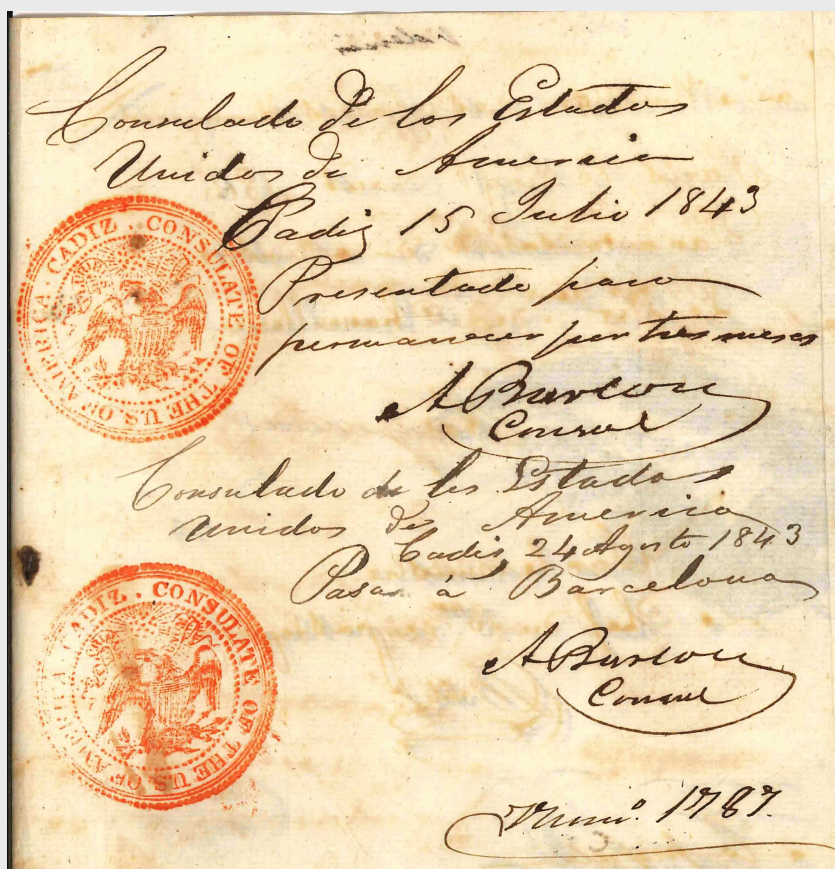 Consulado de los Estados
Unidos de America
Cadiz 15 Julio 1843
Presentado para
permanecer por tres meses
A Burton
Consul
CADIZ . CONSULATE OF THE U.S. OF AMERICA .
Consulado de los Estados
Unidos de America
Cadiz 24 Agosto 1843
Pasa á Barcelona
A Burton
Consul
CADIZ . CONSULATE OF THE U.S. OF AMERICA .
Numo. 1787.